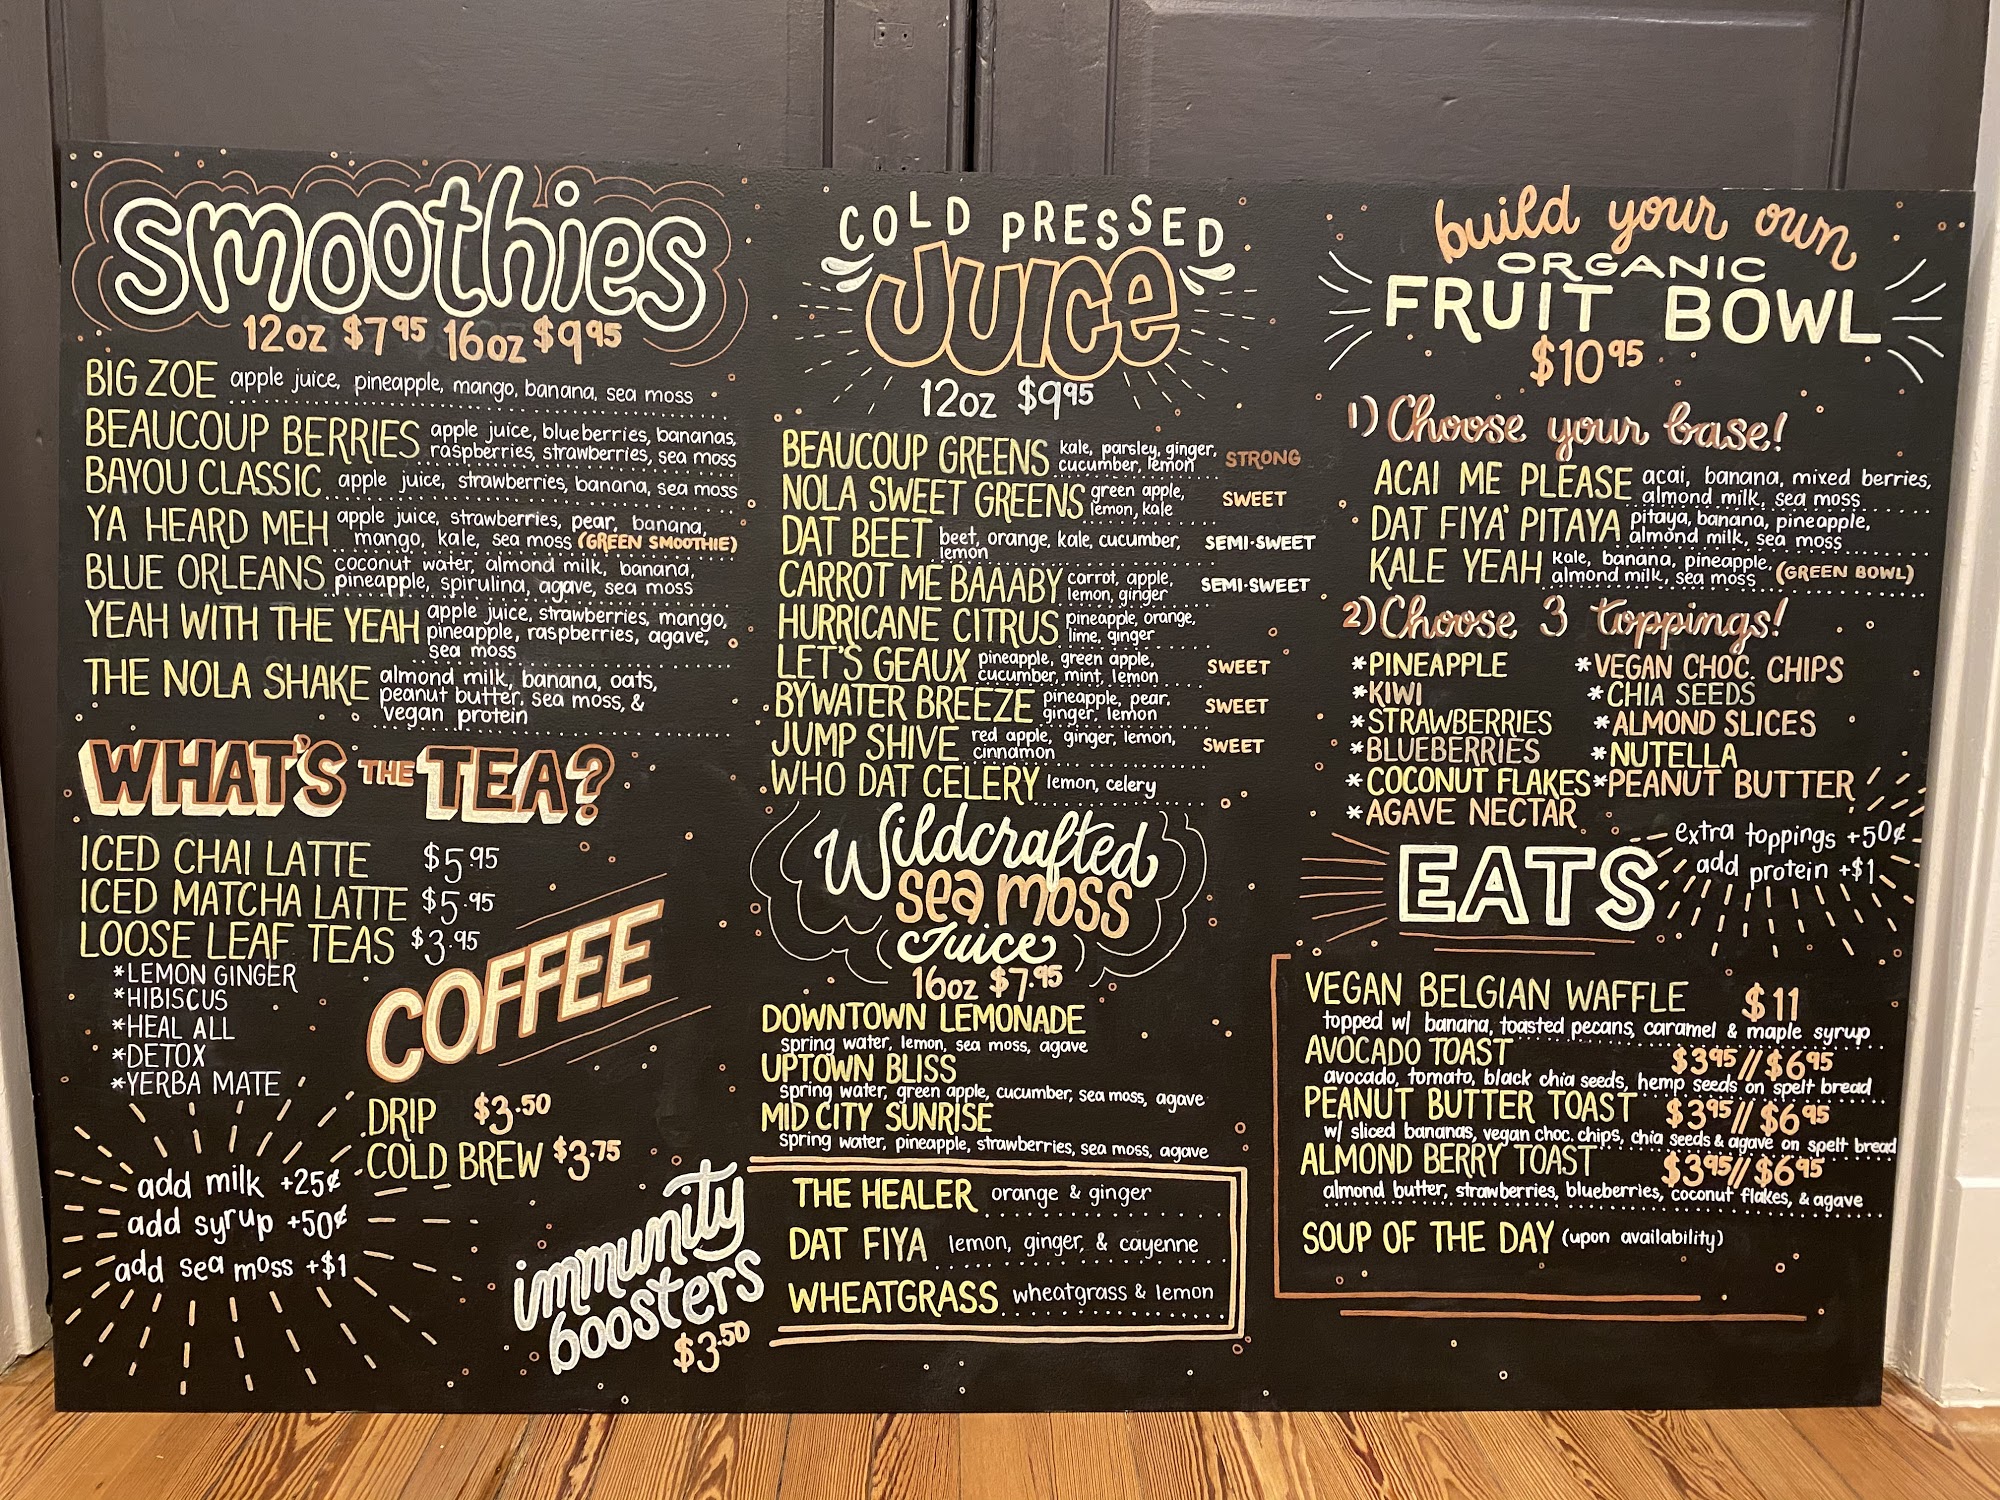 smoothies
12oz $7.95 16oz $9.95
BIG ZOE apple juice, pineapple, mango, banana, sea moss
BEAUCOUP BERRIES apple juice, blueberries, bananas,
raspberries, strawberries, sea moss
BAYOU CLASSIC apple juice, strawberries, banana, sea moss
YA HEARD MEH apple juice, strawberries, pear, banana,
mango, kale, sea moss (GREEN SMOOTHIE)
BLUE ORLEANS coconut water, almond milk, banana,
pineapple, spirulina, agave, sea moss
YEAH WITH THE YEAH apple juice, strawberries, mango,
pineapple, raspberries, agave,
sea moss
THE NOLA SHAKE almond milk, banana, oats,
peanut butter, sea moss, &
vegan protein
WHAT'S THE TEA?
ICED CHAI LATTE $5.95
ICED MATCHA LATTE $5.95
LOOSE LEAF TEAS $3.95
*LEMON GINGER
*HIBISCUS
*HEAL ALL
*DETOX
*YERBA MATE
add milk +25¢
add syrup +50¢
add sea moss +$1
COFFEE
DRIP $3.50
COLD BREW $3.75
immunity
boosters
$3.50
THE HEALER orange & ginger
DAT FIYA lemon, ginger, & cayenne
WHEATGRASS wheatgrass & lemon
COLD PRESSED
JUICE
12oz $9.95
BEAUCOUP GREENS kale, parsley, ginger,
cucumber, lemon STRONG
NOLA SWEET GREENS green apple,
lemon, kale SWEET
DAT BEET beet, orange, kale, cucumber,
lemon SEMI-SWEET
CARROT ME BAAABY carrot, apple,
lemon, ginger SEMI-SWEET
HURRICANE CITRUS pineapple, orange,
lime, ginger
LET'S GEAUX pineapple, green apple,
cucumber, mint, lemon SWEET
BYWATER BREEZE pineapple, pear,
ginger, lemon SWEET
JUMP SHIVE red apple, ginger, lemon,
cinnamon SWEET
WHO DAT CELERY lemon, celery
Wildcrafted
sea moss
Juice
16oz $7.95
DOWNTOWN LEMONADE
spring water, lemon, sea moss, agave
UPTOWN BLISS
spring water, green apple, cucumber, sea moss, agave
MID CITY SUNRISE
spring water, pineapple, strawberries, sea moss, agave
build your own
ORGANIC
FRUIT BOWL
$10.95
1) Choose your base!
ACAI ME PLEASE acai, banana, mixed berries,
almond milk, sea moss
DAT FIYA' PITAYA pitaya, banana, pineapple,
almond milk, sea moss
KALE YEAH kale, banana, pineapple,
almond milk, sea moss (GREEN BOWL)
2) Choose 3 toppings!
*PINEAPPLE *VEGAN CHOC. CHIPS
*KIWI *CHIA SEEDS
*STRAWBERRIES *ALMOND SLICES
*BLUEBERRIES *NUTELLA
*COCONUT FLAKES *PEANUT BUTTER
*AGAVE NECTAR
extra toppings +50¢
add protein +$1
EATS
VEGAN BELGIAN WAFFLE $11
topped w/ banana, toasted pecans, caramel & maple syrup
AVOCADO TOAST $3.95 // $6.95
avocado, tomato, black chia seeds, hemp seeds on spelt bread
PEANUT BUTTER TOAST $3.95 // $6.95
w/ sliced bananas, vegan choc. chips, chia seeds & agave on spelt bread
ALMOND BERRY TOAST $3.95 // $6.95
almond butter, strawberries, blueberries, coconut flakes, & agave
SOUP OF THE DAY (upon availability)